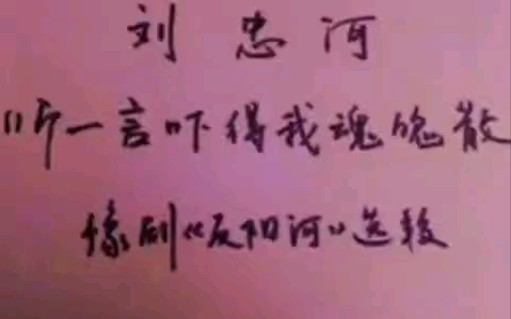 刘忠河
听一言吓得我魂魄散
豫剧《反阳河》选段